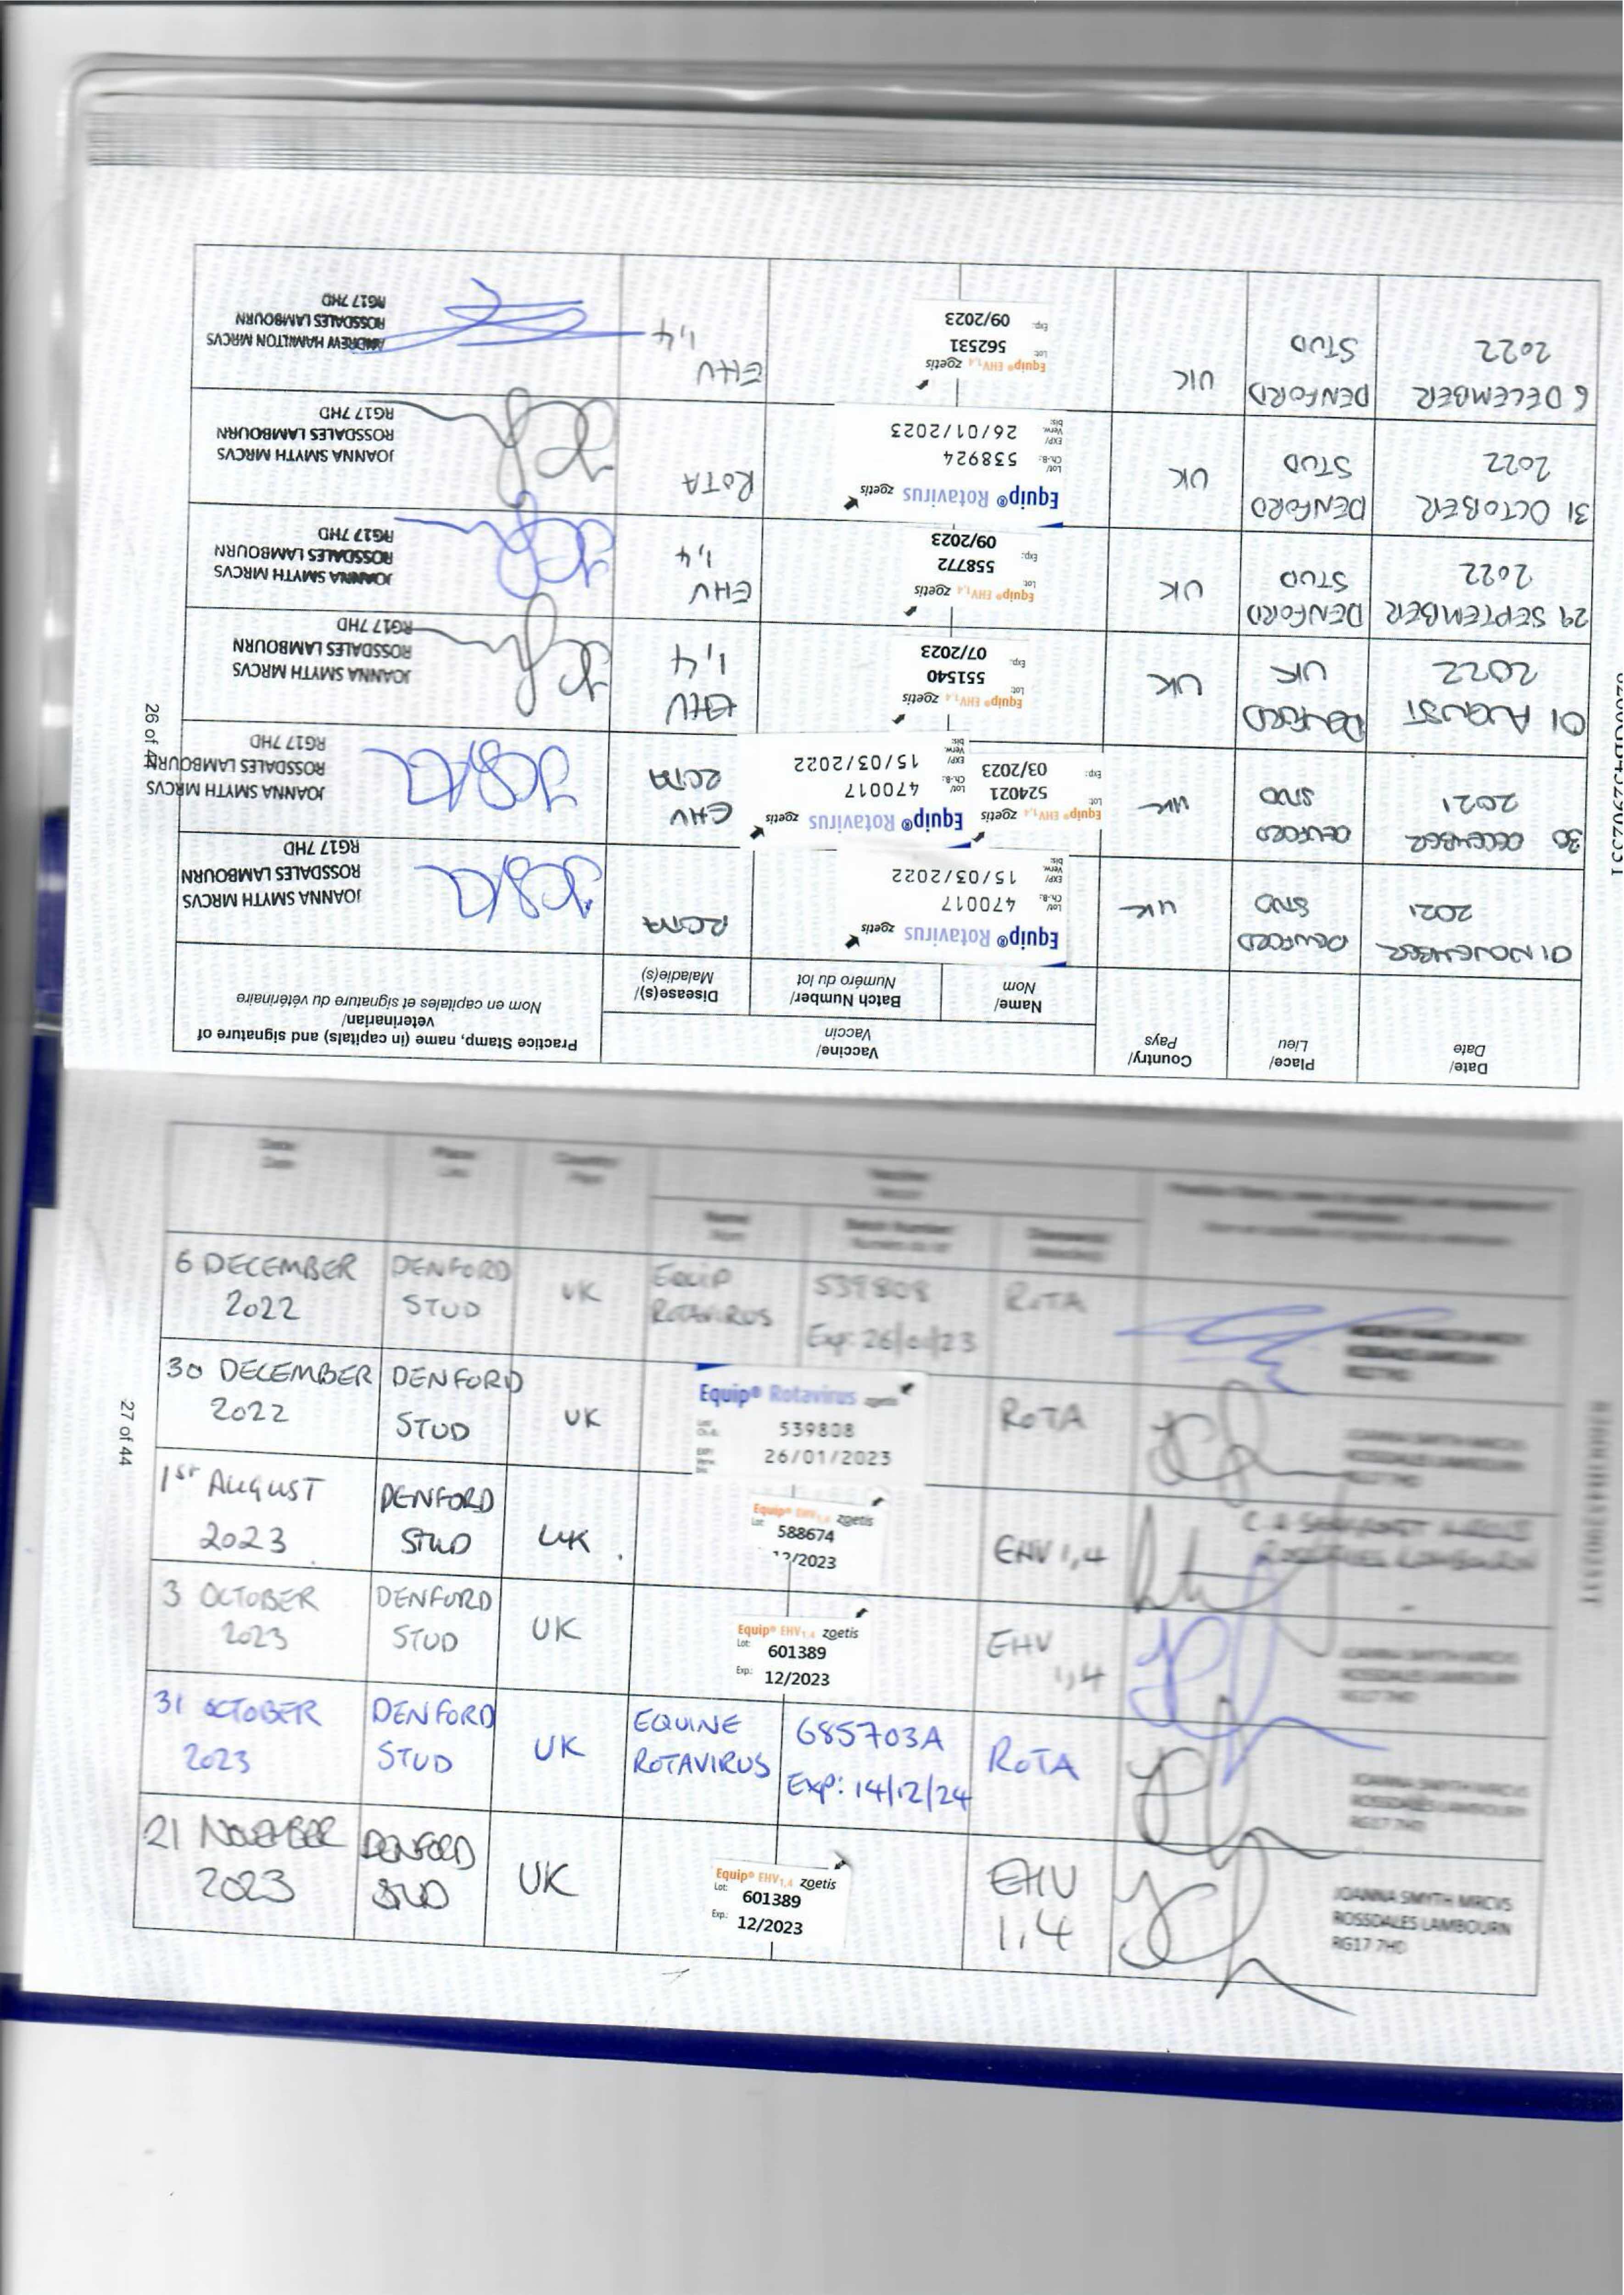 26 of 44
Date/
Date
Place/
Lieu
Country/
Pays
Vaccine/
Vaccin
Name/
Nom
Batch Number/
Numéro du lot
Disease(s)/
Maladie(s)
Practice Stamp, name (in capitals) and signature of
veterinarian/
Nom en capitales et signature du vétérinaire
01 NOVEMBER
2021
DENFORD
STUD
UK
Equip® Rotavirus zoetis
Lot/
Ch.-B.:
470017
EXP/
Verw.
bis:
15/03/2022
ROTA
JOANNA SMYTH MRCVS
ROSSDALES LAMBOURN
RG17 7HD
30 DECEMBER
2021
DENFORD
STUD
UK
Equip® EHV1,4 zoetis
Lot:
524021
Exp:
03/2023
Equip® Rotavirus zoetis
Lot/
Ch.-B.:
470017
EXP/
Verw.
bis:
15/03/2022
EHV
ROTA
JOANNA SMYTH MRCVS
ROSSDALES LAMBOURN
RG17 7HD
01 AUGUST
2022
DENFORD
UK
UK
Equip® EHV1,4 zoetis
Lot:
551540
Exp:
07/2023
EHV
1,4
JOANNA SMYTH MRCVS
ROSSDALES LAMBOURN
RG17 7HD
29 SEPTEMBER
2022
DENFORD
STUD
UK
Equip® EHV1,4 zoetis
Lot:
558772
Exp:
09/2023
EHV
1,4
JOANNA SMYTH MRCVS
ROSSDALES LAMBOURN
RG17 7HD
31 OCTOBER
2022
DENFORD
STUD
UK
Equip® Rotavirus zoetis
Lot/
Ch.-B.:
538924
EXP/
Verw.
bis:
26/01/2023
ROTA
JOANNA SMYTH MRCVS
ROSSDALES LAMBOURN
RG17 7HD
6 DECEMBER
2022
DENFORD
STUD
UK
Equip® EHV1,4 zoetis
Lot:
562531
Exp:
09/2023
EHV
1,4
ANDREW HAMILTON MRCVS
ROSSDALES LAMBOURN
RG17 7HD
27 of 44
Date/
Date
Place/
Lieu
Country/
Pays
Vaccine/
Vaccin
Name/
Nom
Batch Number/
Numéro du lot
Disease(s)/
Maladie(s)
6 DECEMBER
2022
DENFORD
STUD
UK
EQUIP
ROTAVIRUS
539808
Exp: 26/01/23
ROTA
30 DECEMBER
2022
DENFORD
STUD
UK
Equip® Rotavirus zoetis
539808
26/01/2023
ROTA
JOANNA SMYTH MRCVS
ROSSDALES LAMBOURN
RG17 7HD
1ST AUGUST
2023
DENFORD
STUD
UK
Equip® EHV1,4 zoetis
Lot:
588674
/2023
EHV 1,4
ROSSDALES LAMBOURN
3 OCTOBER
2023
DENFORD
STUD
UK
Equip® EHV1,4 zoetis
Lot:
601389
Exp:
12/2023
EHV
1,4
JOANNA SMYTH MRCVS
ROSSDALES LAMBOURN
RG17 7HD
31 OCTOBER
2023
DENFORD
STUD
UK
EQUINE
ROTAVIRUS
685703A
EXP: 14/12/24
ROTA
JOANNA SMYTH MRCVS
ROSSDALES LAMBOURN
RG17 7HD
21 NOVEMBER
2023
DENFORD
STUD
UK
Equip® EHV1,4 zoetis
Lot:
601389
Exp:
12/2023
EHV
1,4
JOANNA SMYTH MRCVS
ROSSDALES LAMBOURN
RG17 7HD